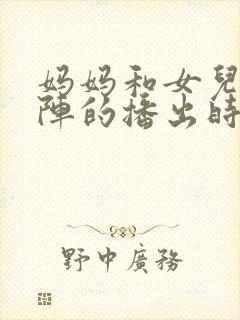 妈妈和女兒
陣的播出時
野中廣務